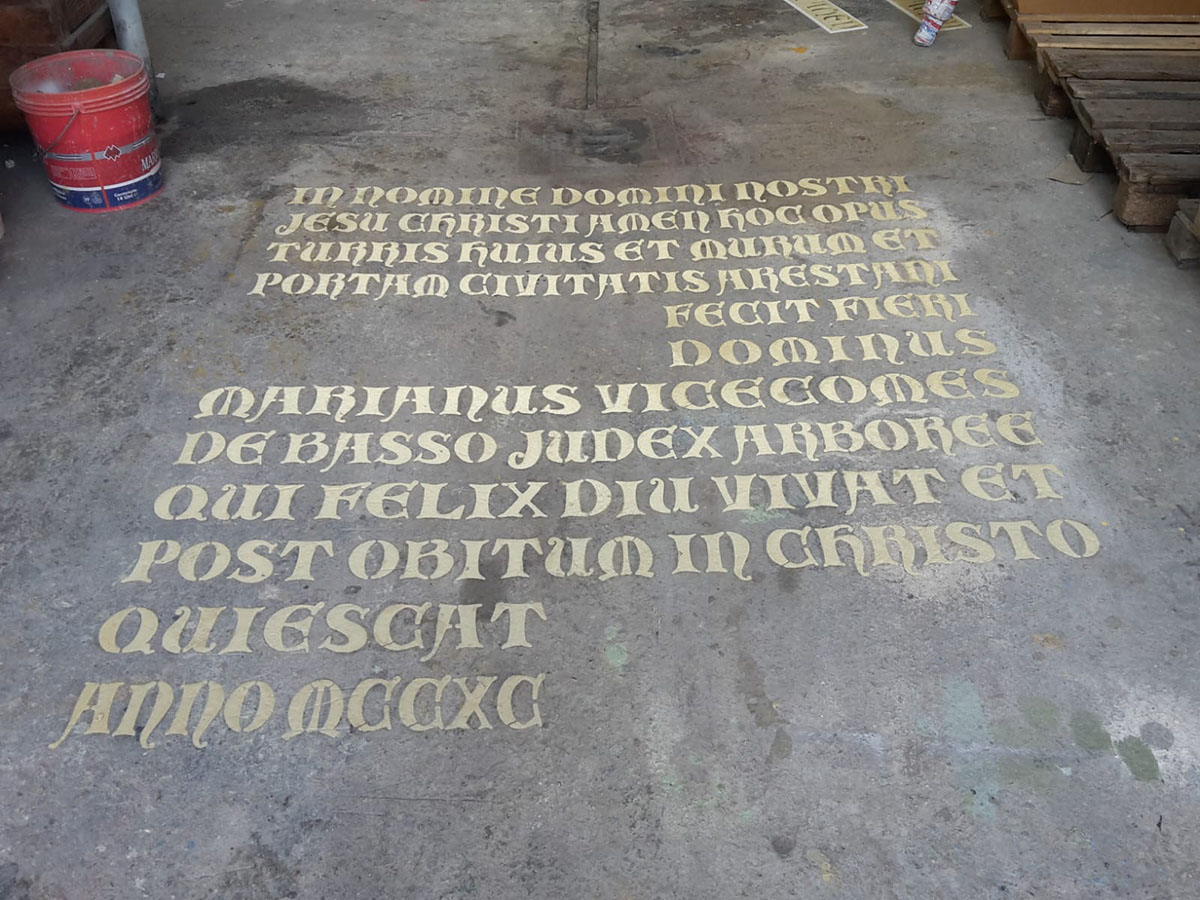 IN NOMINE DOMINI NOSTRI
JESU CHRISTI AMEN HOC OPUS
TURRIS HUIUS ET MURUM ET
PORTAM CIVITATIS ARESTANI
FECIT FIERI
DOMINUS
MARIANUS VICECOMES
DE BASSO JUDEX ARBOREE
QUI FELIX DIU VIVAT ET
POST OBITUM IN CHRISTO
QUIESCAT
ANNO MCCXC